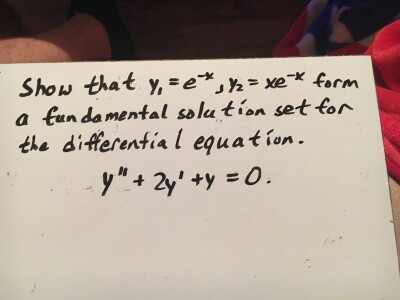 Show that y₁ = e⁻ˣ, y₂ = xe⁻ˣ form
a fundamental solution set for
the differential equation.
y" + 2y' + y = 0.